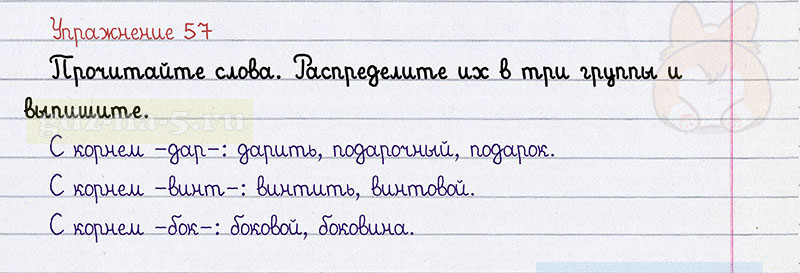 Упражнение 57
Прочитайте слова. Распределите их в три группы и
выпишите.
С корнем -дар-: дарить, подарочный, подарок.
С корнем -винт-: винтить, винтовой.
С корнем -бок-: боковой, боковина.